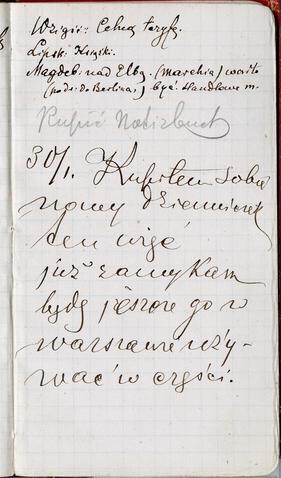 Wziąść: Celną taryfę.
Lipsk: Książki.
Magdeb: nad Elbą. (marchia) warto
(podr: do Berlina,) być. Handlowe m.
Kupić Notizbuch
30/1. Kupiłem sobie
nowy dzienniczek
ten więc
już zamykam
będę jeszcze go w
warszawie uży-
wać w części.